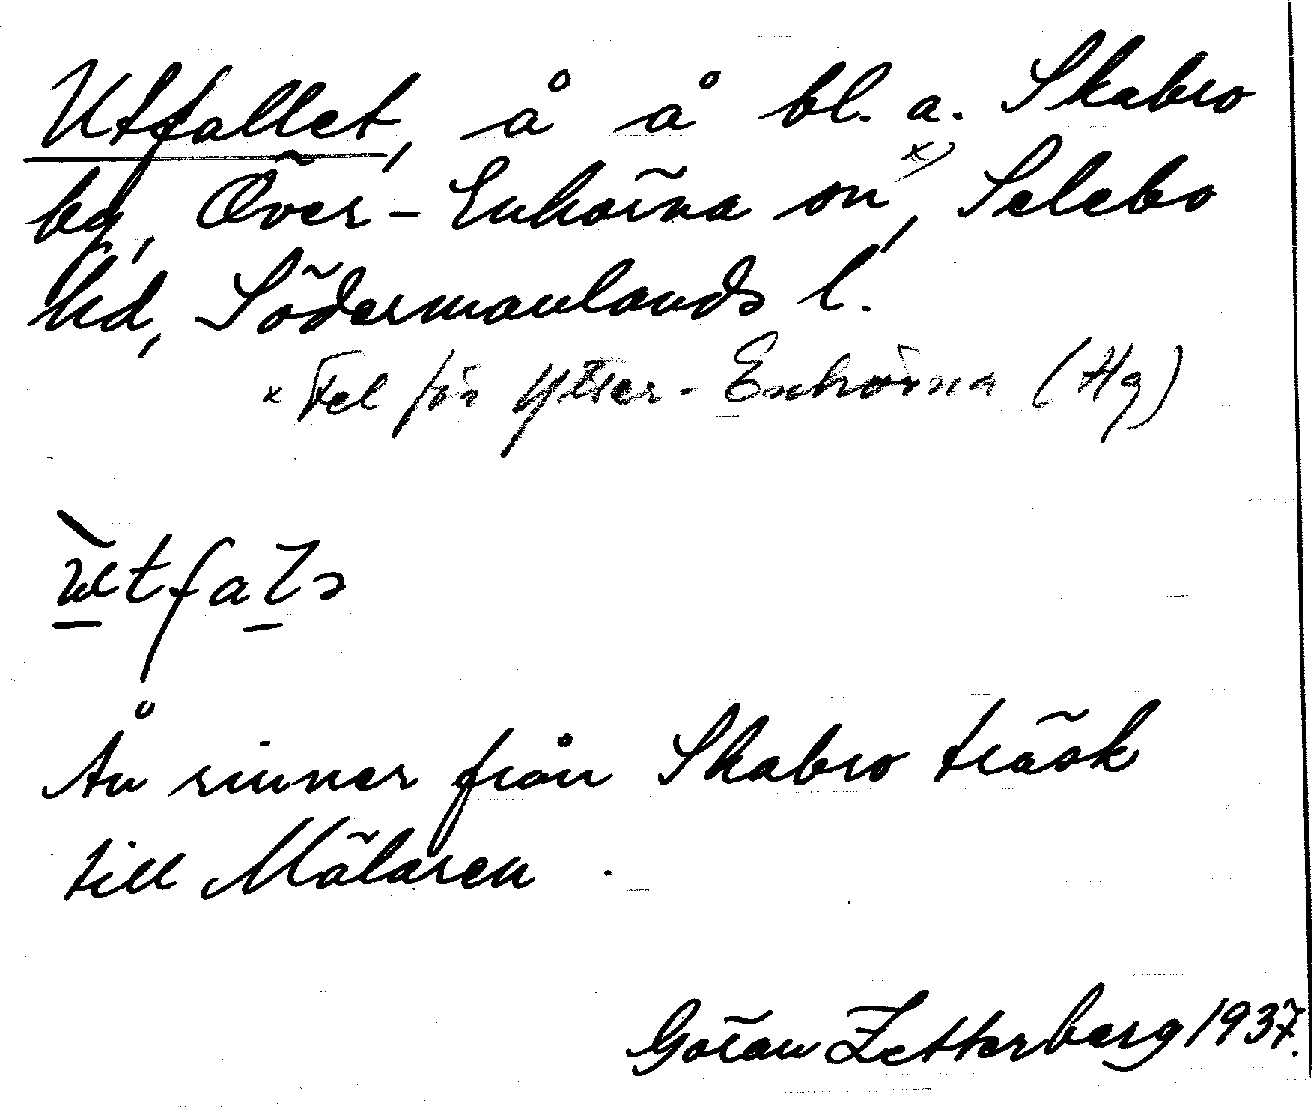 Utfallet, å å bl. a. Skabro
by, Över-Enhörna sn x), Selebo
hd, Södermanlands l.
x Fel för Ytter-Enhörna (Hg)
ùtfalə
Ån rinner från Skabro träsk
till Mälaren.
Göran Zetterberg 1937.